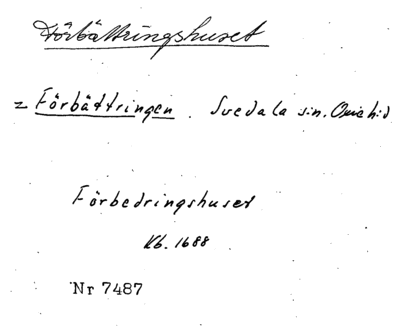 Förbättringshuset
= Förbättringen. Svedala sn. Oxie hd
Förbedringshuset
Kb. 1688
Nr 7487